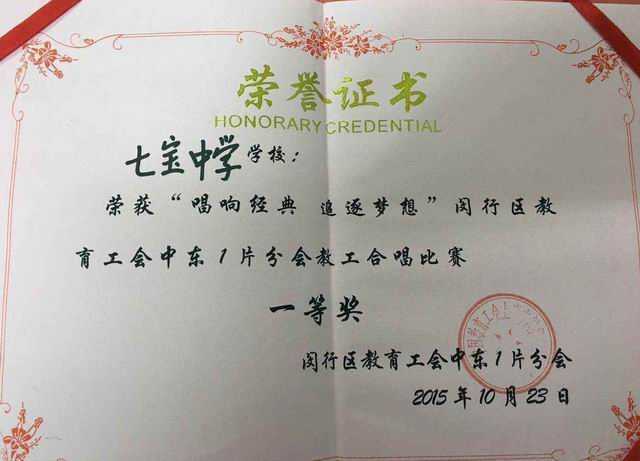 荣誉证书
HONORARY CREDENTIAL
七宝中学学校：
荣获“唱响经典 追逐梦想”闵行区教
育工会中东1片分会教工合唱比赛
一等奖
闵行区教育工会中东1片分会
2015年10月23日